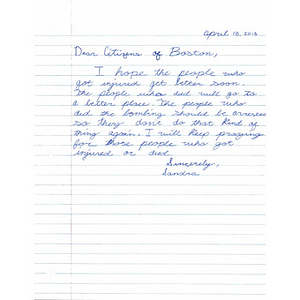 April 18, 2013
Dear Citizens of Boston,
I hope the people who
got injured get better soon.
The people who died will go to
a better place. The people who
did the bombing should be arrested
so they don't do that kind of
thing again. I will keep praying
for those people who got
injured or died.
Sincerely,
Sandra